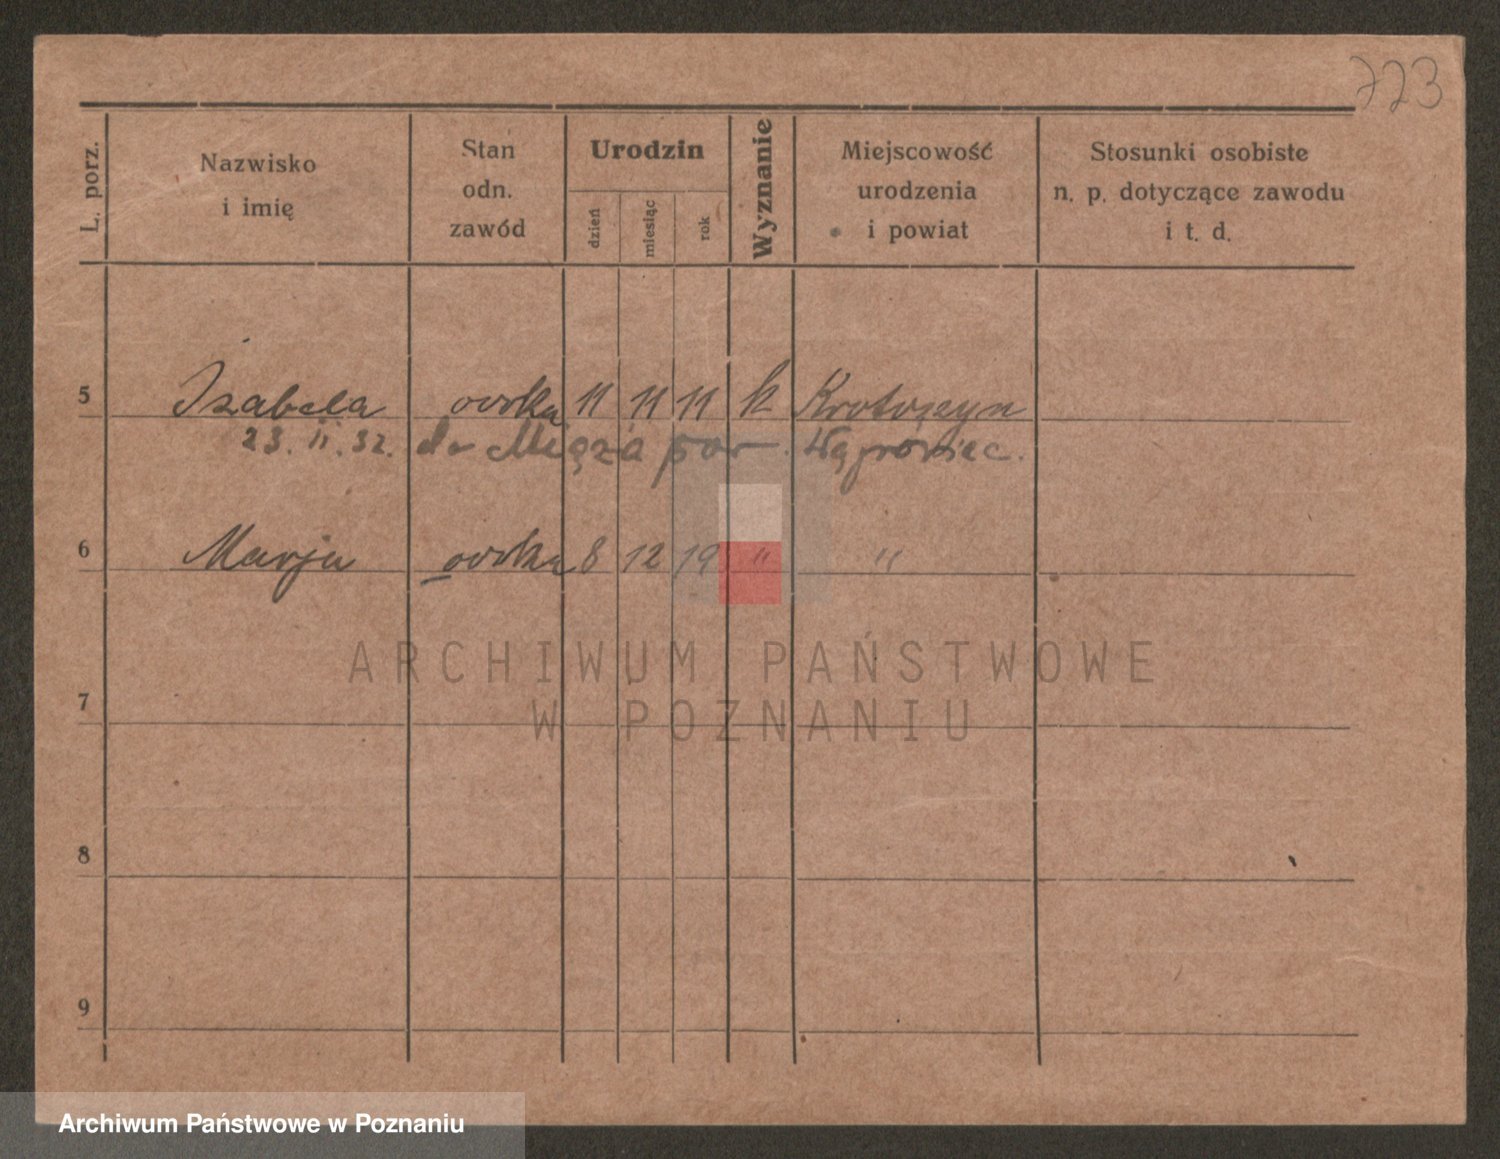 723
L. porz.
Nazwisko
i imię
Stan
odn.
zawód
Urodzin
dzień
miesiąc
rok
Wyznanie
Miejscowość
urodzenia
i powiat
Stosunki osobiste
n. p. dotyczące zawodu
i t. d.
5 Izabela 11 11 11 k Krotoszyn
23. II. 32. do pow. Wągrowiec.
6 Marja 8 12 19 " "
7
8
9
ARCHIWUM PAŃSTWOWE
W POZNANIU
Archiwum Państwowe w Poznaniu